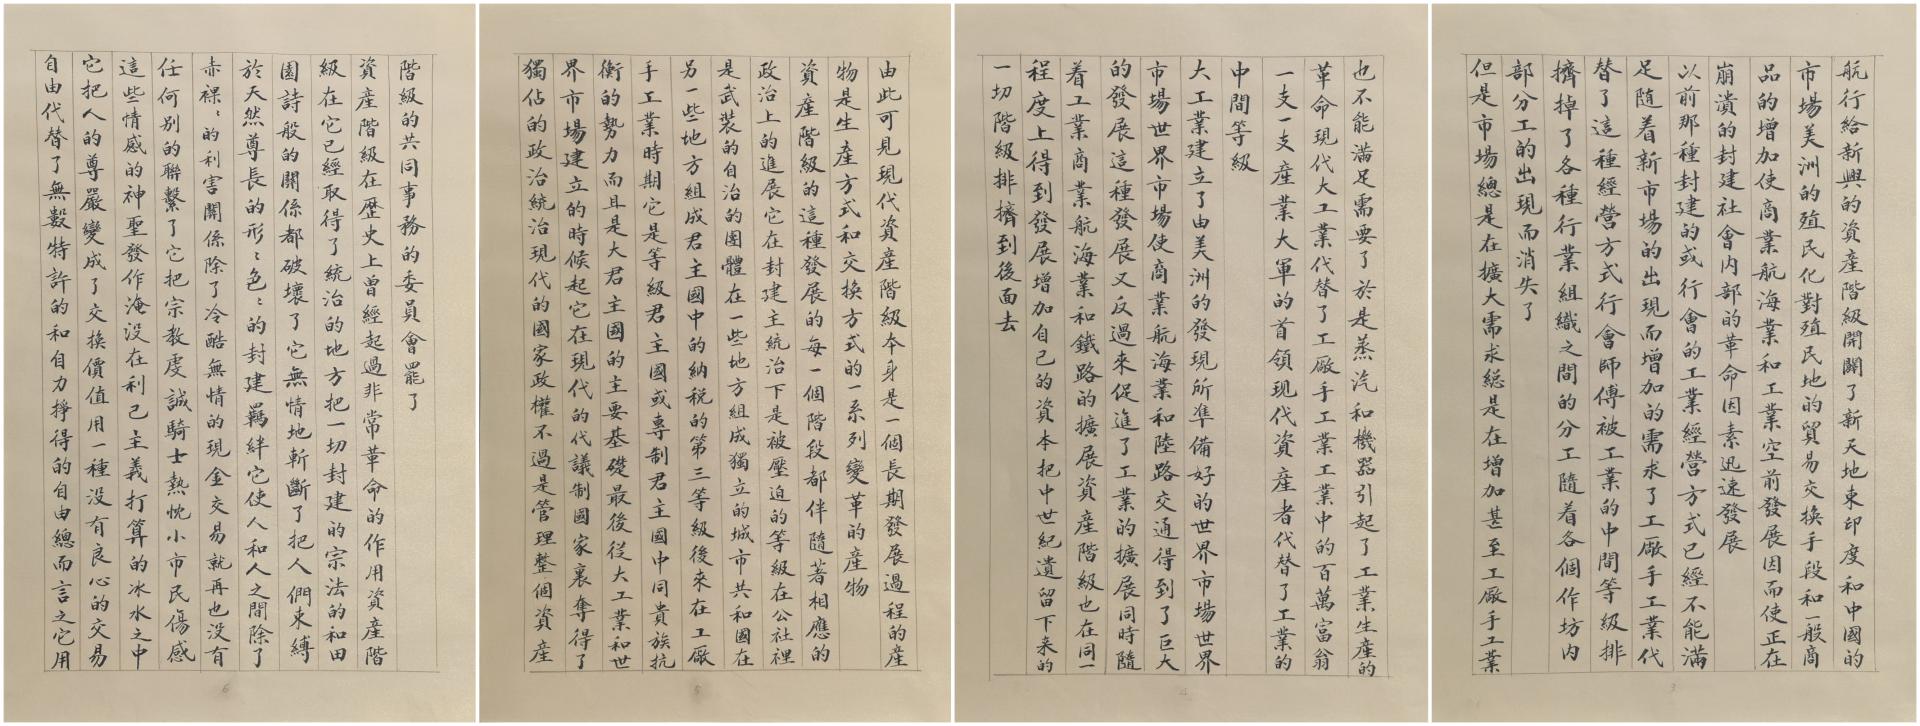 航行給新興的資產階級開闢了新天地東印度和中國的
市場美洲的殖民化對殖民地的貿易交換手段和一般商
品的增加使商業航海業和工業空前發展因而使正在
崩潰的封建社會內部的革命因素迅速發展
以前那種封建的或行會的工業經營方式已經不能滿
足隨着新市場的出現而增加的需求了工廠手工業代
替了這種經營方式行會師傅被工業的中間等級排
擠掉了各種行業組織之間的分工隨着各個作坊內
部分工的出現而消失了
但是市場總是在擴大需求総是在增加甚至工廠手工業
3
也不能滿足需要了於是蒸汽和機器引起了工業生產的
革命現代大工業代替了工廠手工業工業中的百萬富翁
一支一支產業大軍的首領現代資產者代替了工業的
中間等級
大工業建立了由美洲的發現所準備好的世界市場世界
市場世界市場使商業航海業和陸路交通得到了巨大
的發展這種發展又反過來促進了工業的擴展同時隨
着工業商業航海業和鐵路的擴展資產階級也在同一
程度上得到發展增加自己的資本把中世紀遺留下来的
一切階級排擠到後面去
4
由此可見現代資產階級本身是一個長期發展過程的產
物是生產方式和交換方式的一系列變革的產物
資產階級的這種發展的每一個階段都伴隨著相應的
政治上的進展它在封建主統治下是被壓迫的等級在公社裡
是武裝的自治的團體在一些地方組成獨立的城市共和國在
另一些地方組成君主國中的納税的第三等級後來在工廠
手工業時期它是等級君主國或專制君主國中同貴族抗
衡的勢力而且是大君主國的主要基礎最後從大工業和世
界市場建立的時候起它在現代的代議制國家裏奪得了
獨佔的政治統治現代的國家政權不過是管理整個資產
5
階級的共同事務的委員會罷了
資產階級在歷史上曾經起過非常革命的作用資產階
級在它已經取得了統治的地方把一切封建的宗法的和田
園詩般的關係都破壞了它無情地斬斷了把人們束縛
於天然尊長的形〻色〻的封建羈絆它使人和人之間除了
赤裸〻的利害關係除了冷酷無情的現金交易就再也没有
任何別的聯繫了它把宗教虔誠騎士熱忱小市民傷感
這些情感的神聖發作淹没在利己主義打算的冰水之中
它把人的尊嚴變成了交換價值用一種没有良心的交易
自由代替了無數特許的和自力掙得的自由總而言之它用
6